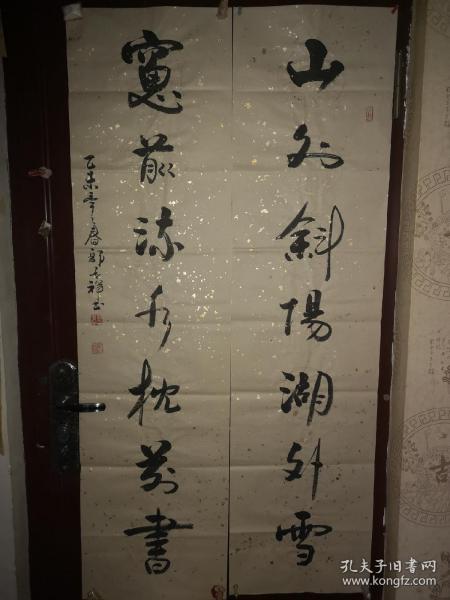 山外斜陽湖外雪
窻前流水枕前書
乙未年春郭
孔夫子旧书网
www.kongfz.com